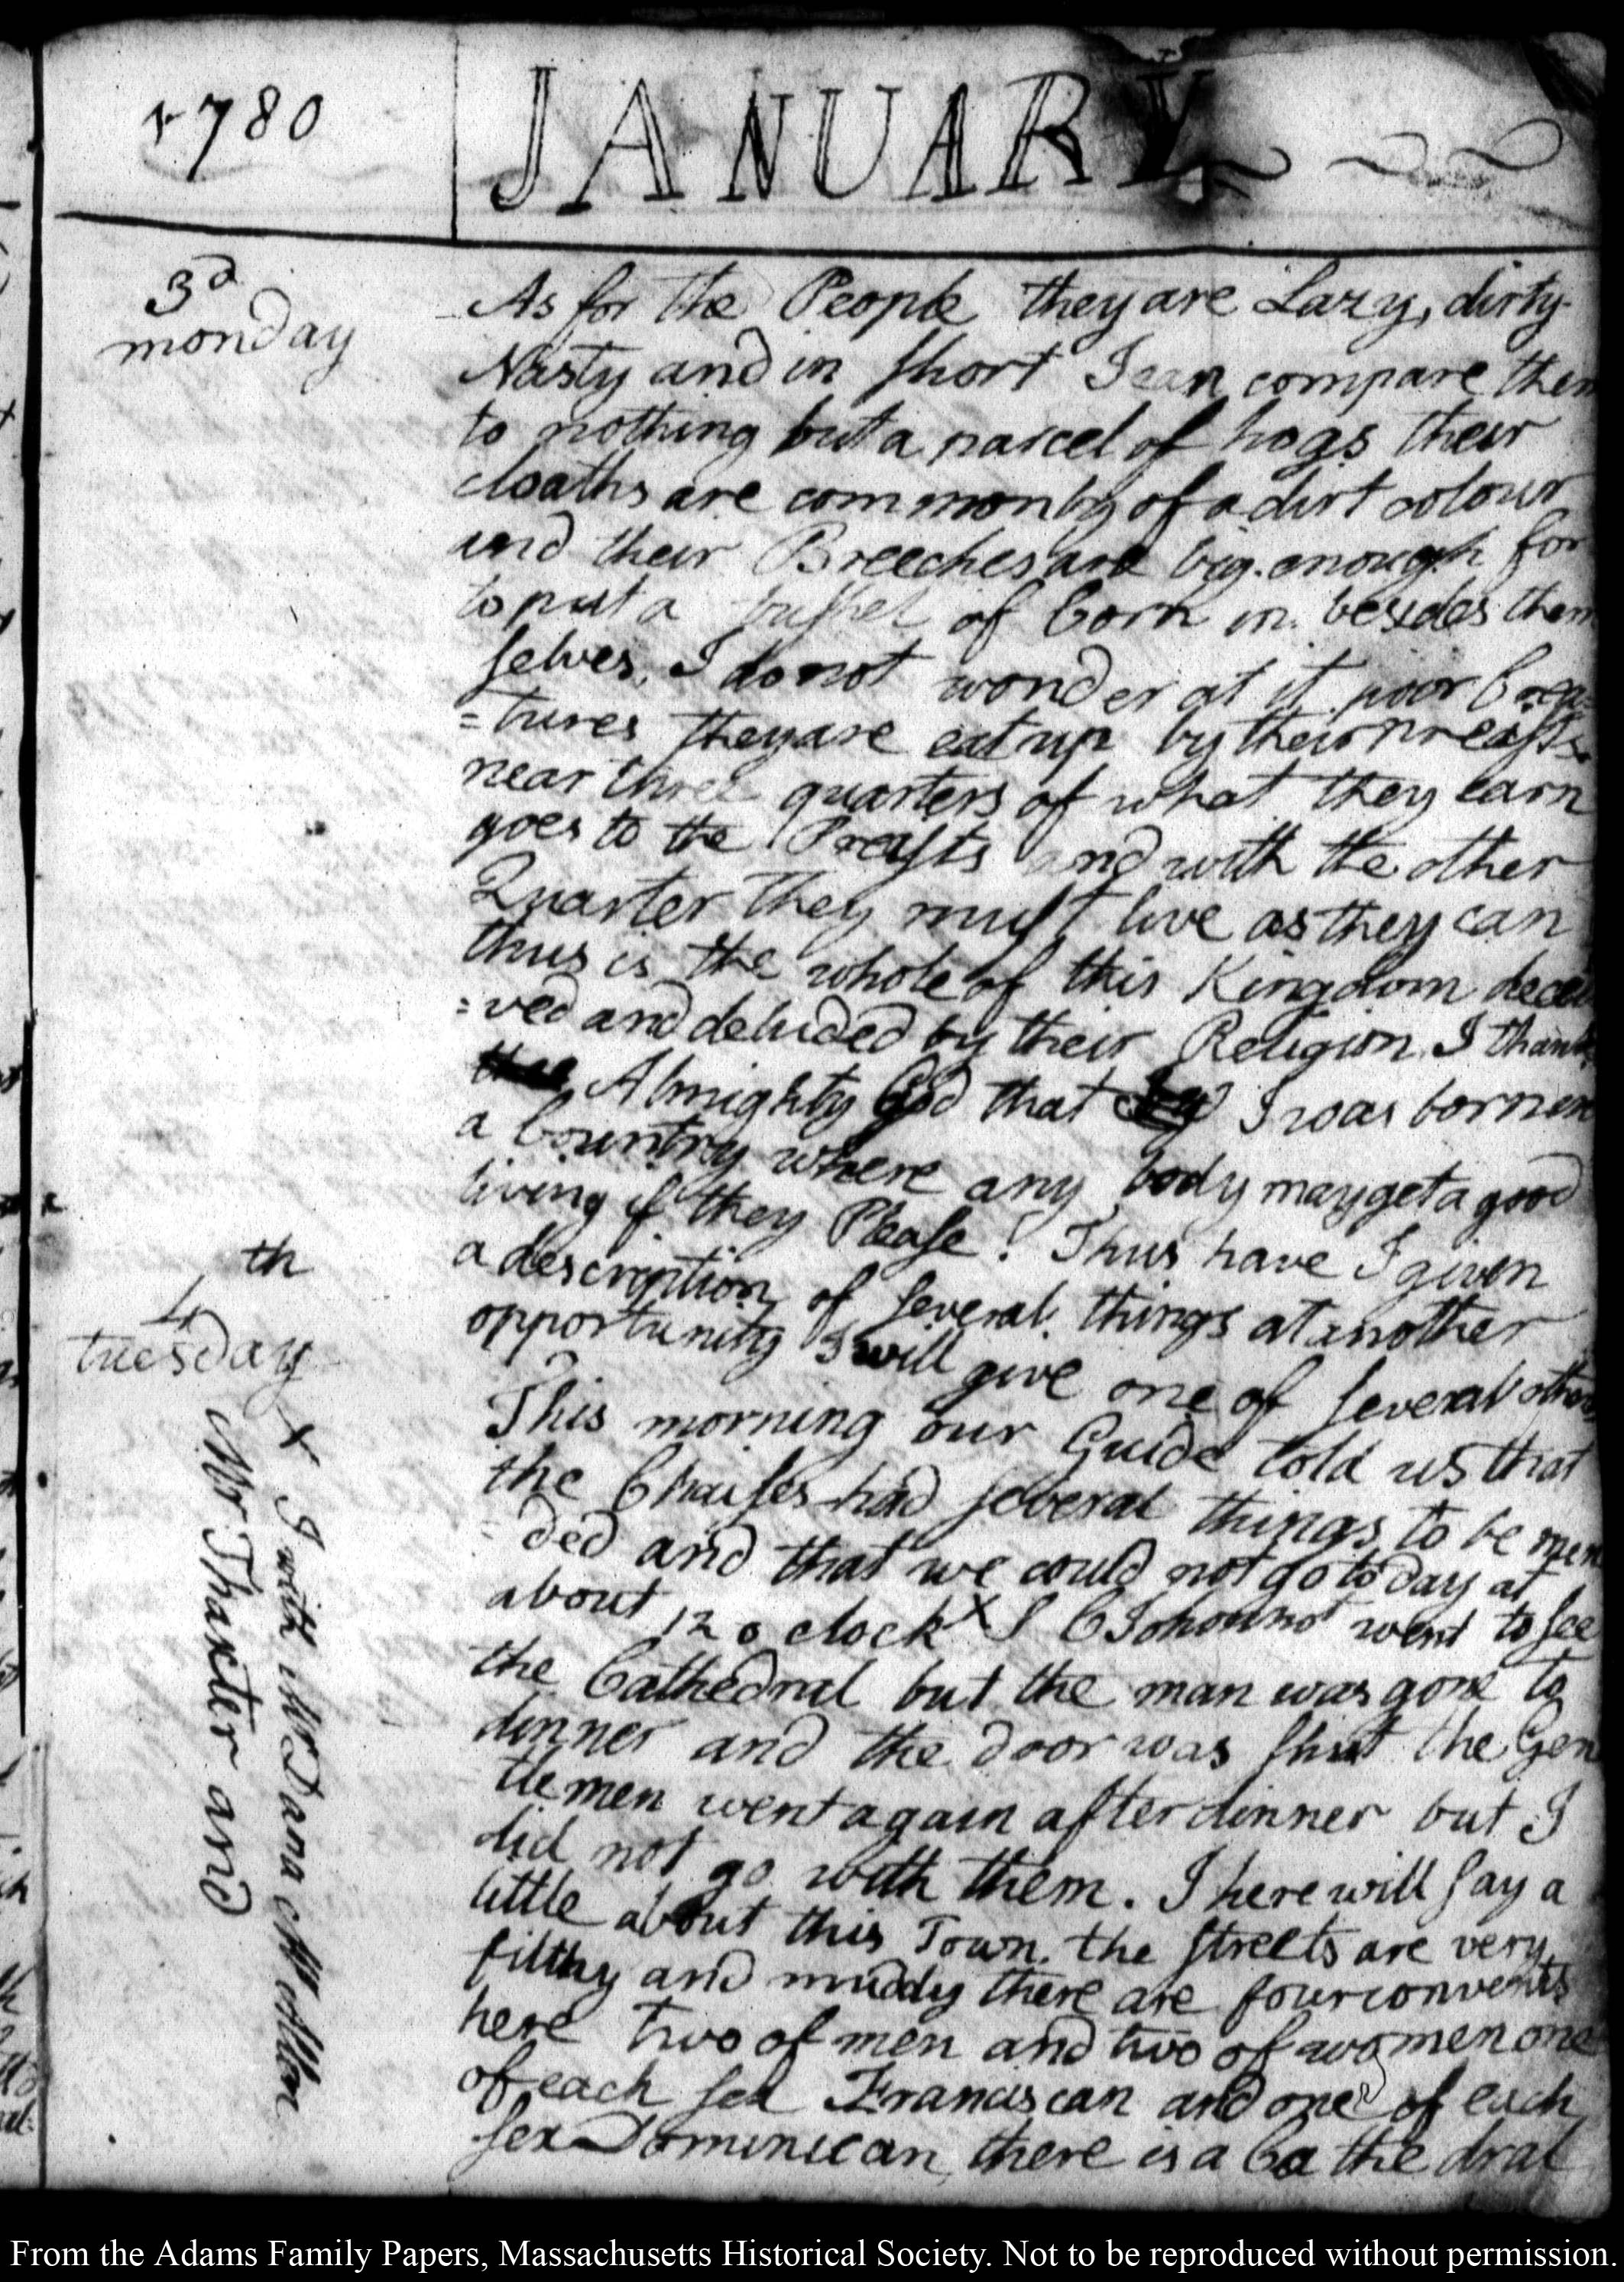 1780
JANUARY
3d
monday
As for the People they are Lazy, dirty
Nasty and in short I can compare them
to nothing but a parcel of hogs their
cloaths are commonly of a dirt colour
and their Breeches are big enough for
to put a bushel of Corn in besides them
selves, I do not wonder at it poor Crea
=tures they are eat up by their preasts
near three quarters of what they earn
goes to the Preasts and with the other
Quarter they must live as they can
thus is the whole of this Kingdom decei
=ved and deluded by their Religion. I thank
Almighty God that I was born in
a Country where any body may get a good
living if they Please! Thus have I given
a description of several things at another
opportunity I will give one of several others
4th
tuesday
This morning our Guide told us that
the Chaises had several things to be men
=ded and that we could not go to day at
about 12 o clock X S C Johonnot went to see
the Cathedral but the man was gone to
dinner and the door was shut the Gen
tlemen went again after dinner but I
did not go with them. I here will say a
little about this Town. the streets are very
filthy and muddy there are four convents
here two of men and two of women one
of each sex Franciscan and one of each
sex Dominican, there is a Ca the dral
X I with Mr Dana Mr Allen
Mr Thaxter and
From the Adams Family Papers, Massachusetts Historical Society. Not to be reproduced without permission.